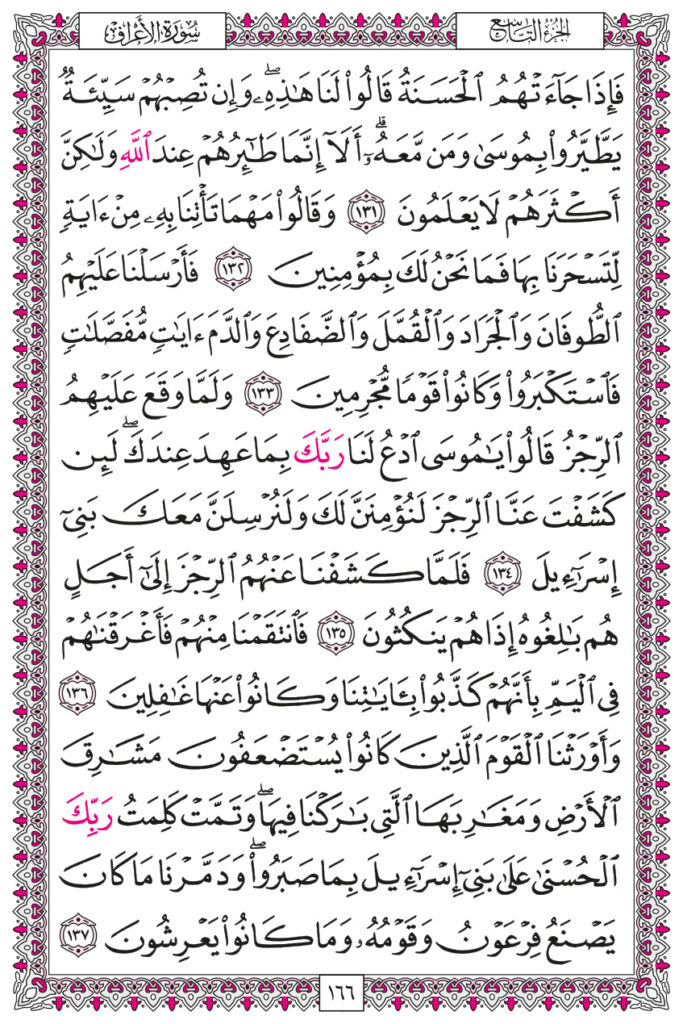 الجزء التاسع
سورة الأعراف
فَإِذَا جَآءَتْهُمُ ٱلْحَسَنَةُ قَالُوا۟ لَنَا هَـٰذِهِۦ ۖ وَإِن تُصِبْهُمْ سَيِّئَةٌ
يَطَّيَّرُوا۟ بِمُوسَىٰ وَمَن مَّعَهُۥٓ ۗ أَلَآ إِنَّمَا طَـٰٓئِرُهُمْ عِندَ ٱللَّهِ وَلَـٰكِنَّ
أَكْثَرَهُمْ لَا يَعْلَمُونَ ١٣١ وَقَالُوا۟ مَهْمَا تَأْتِنَا بِهِۦ مِنْ ءَايَةٍ
لِّتَسْحَرَنَا بِهَا فَمَا نَحْنُ لَكَ بِمُؤْمِنِينَ ١٣٢ فَأَرْسَلْنَا عَلَيْهِمُ
ٱلطُّوفَانَ وَٱلْجَرَادَ وَٱلْقُمَّلَ وَٱلضَّفَادِعَ وَٱلدَّمَ ءَايَـٰتٍ مُّفَصَّلَـٰتٍ
فَٱسْتَكْبَرُوا۟ وَكَانُوا۟ قَوْمًا مُّجْرِمِينَ ١٣٣ وَلَمَّا وَقَعَ عَلَيْهِمُ
ٱلرِّجْزُ قَالُوا۟ يَـٰمُوسَى ٱدْعُ لَنَا رَبَّكَ بِمَا عَهِدَ عِندَكَ ۖ لَئِن
كَشَفْتَ عَنَّا ٱلرِّجْزَ لَنُؤْمِنَنَّ لَكَ وَلَنُرْسِلَنَّ مَعَكَ بَنِىٓ
إِسْرَٰٓءِيلَ ١٣٤ فَلَمَّا كَشَفْنَا عَنْهُمُ ٱلرِّجْزَ إِلَىٰٓ أَجَلٍ
هُم بَـٰلِغُوهُ إِذَا هُمْ يَنكُثُونَ ١٣٥ فَٱنتَقَمْنَا مِنْهُمْ فَأَغْرَقْنَـٰهُمْ
فِى ٱلْيَمِّ بِأَنَّهُمْ كَذَّبُوا۟ بِـَٔايَـٰتِنَا وَكَانُوا۟ عَنْهَا غَـٰفِلِينَ ١٣٦
وَأَوْرَثْنَا ٱلْقَوْمَ ٱلَّذِينَ كَانُوا۟ يُسْتَضْعَفُونَ مَشَـٰرِقَ
ٱلْأَرْضِ وَمَغَـٰرِبَهَا ٱلَّتِى بَـٰرَكْنَا فِيهَا ۖ وَتَمَّتْ كَلِمَتُ رَبِّكَ
ٱلْحُسْنَىٰ عَلَىٰ بَنِىٓ إِسْرَٰٓءِيلَ بِمَا صَبَرُوا۟ ۖ وَدَمَّرْنَا مَا كَانَ
يَصْنَعُ فِرْعَوْنُ وَقَوْمُهُۥ وَمَا كَانُوا۟ يَعْرِشُونَ ١٣٧
١٦٦